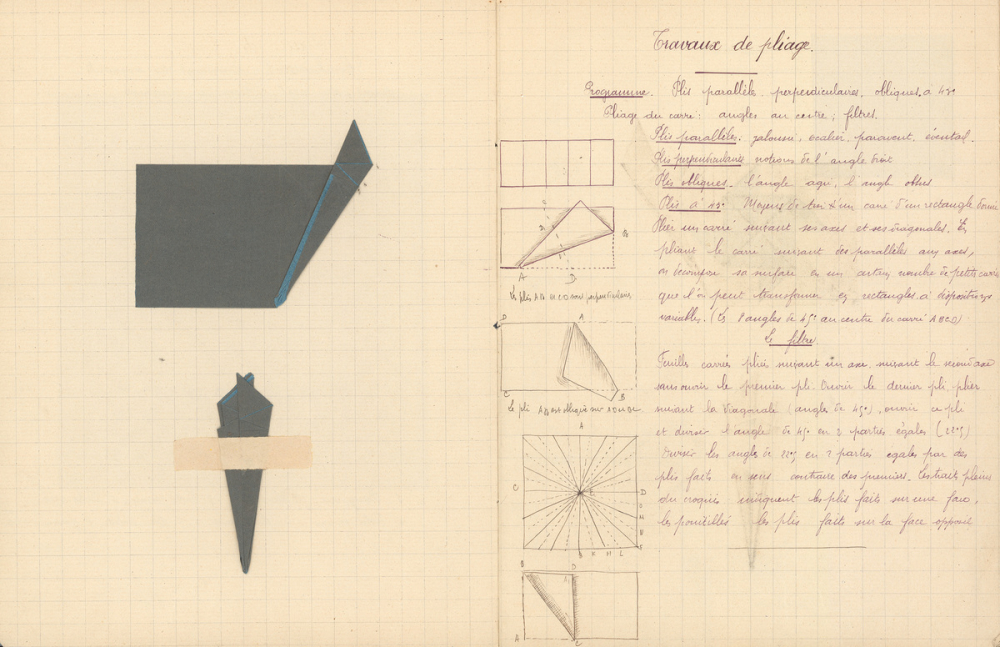 Travaux de pliage.
Programme. Plis parallèls perpendiculaires, obliques à 45°
Pliage du carré: angles au centre; filtres.
Plis parallèles. jalousie, escalier, paravent, éventail
Plis perpendiculaires notions de l'angle droit
Plis obliques. l'angle aigu, l'angle obtus
Plis à 45° Moyens de un carré d'un rectangle donné
Plier un carré suivant ses axes et ses diagonales. En
pliant le carré suivant des parallèles aux axes,
on décompose sa surface en un certain nombre de petits carrés
que l'on peut transformer en rectangles à dispositions
variables. (Les 8 angles de 45° au centre du carré ABCD)
Le filtre
Feuilles carrées pliées suivant un axe, suivant le second axe
sans ouvrir le premier pli. Ouvrir le dernier pli, plier
suivant la diagonale (angles de 45°), ouvrir ce pli
et diviser l'angle de 45° en 2 parties égales (22°5)
Diviser les angles de 22°5 en 2 parties égales par des
plis faits en sens contraire des premiers. Les traits pleins
du croquis indiquent les plis faits sur une face,
les pointillés les plis faits sur la face opposée
A
B
D
Les plis AB et CD sont perpendiculaires
D
A
C
B
Le pli AB est oblique sur
A
C
D
B
D
A
C